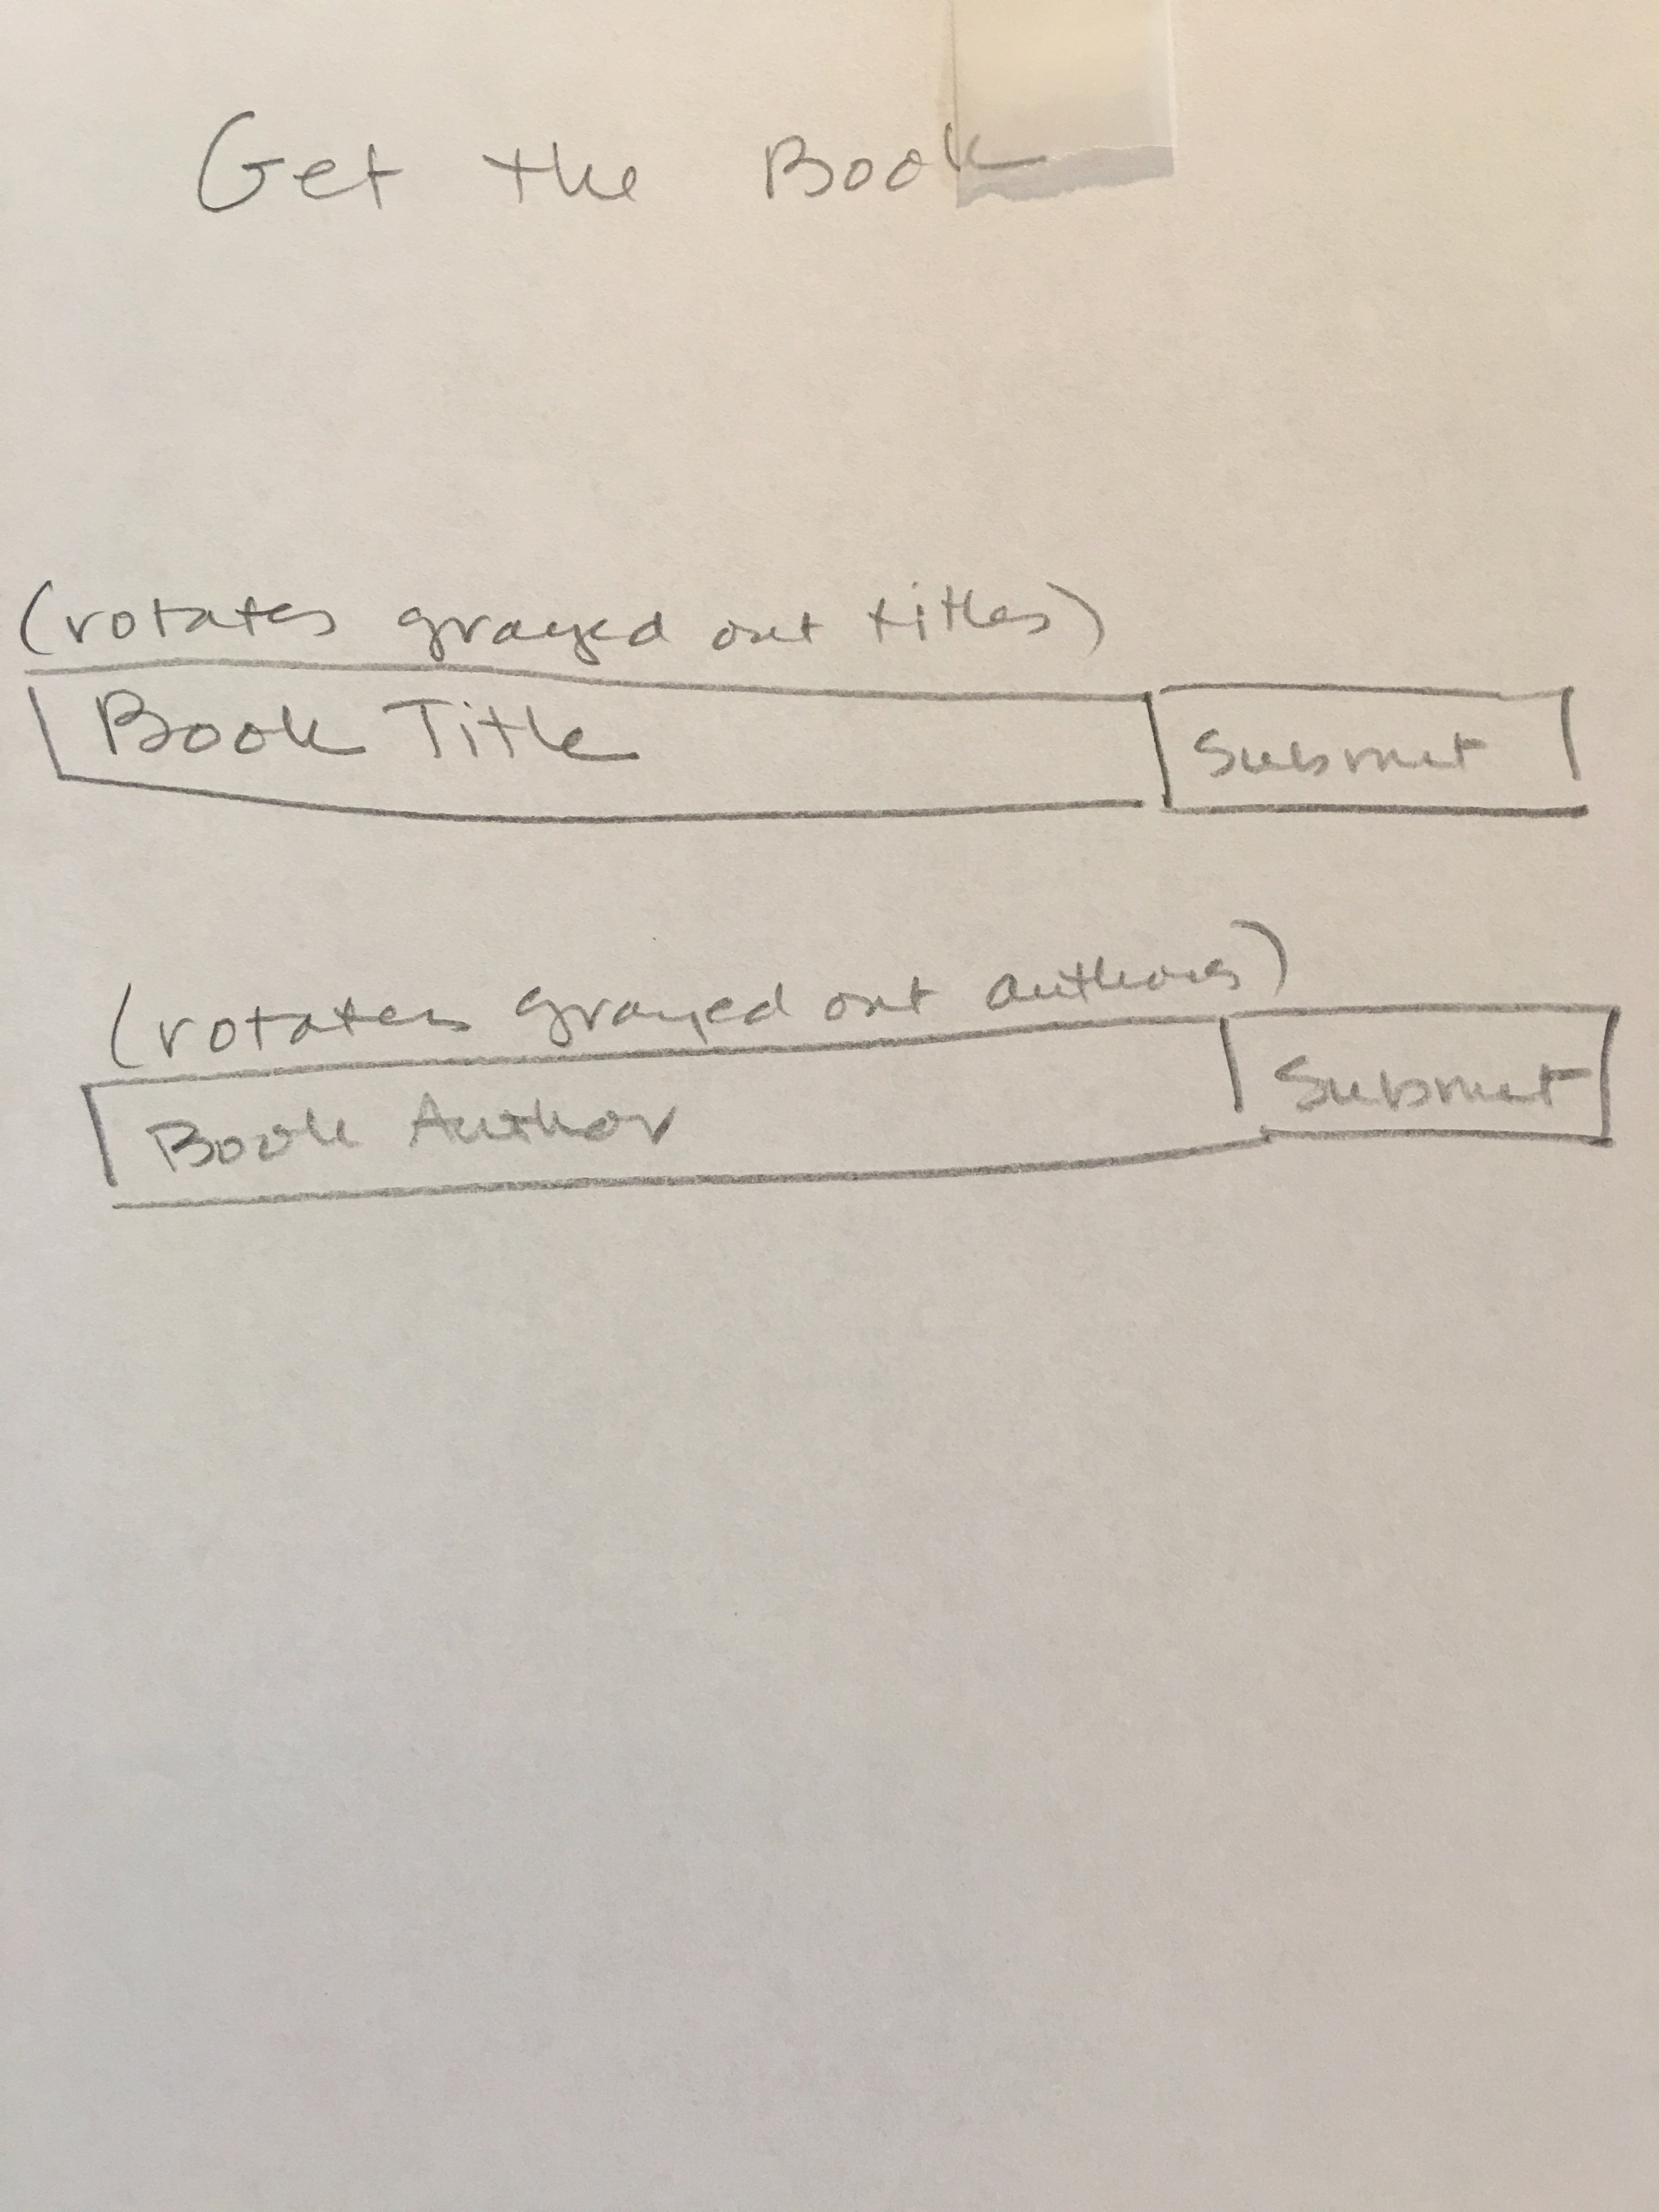 Get the Book
(rotates grayed out titles)
Book Title Submit
(rotates grayed out authors)
Book Author Submit